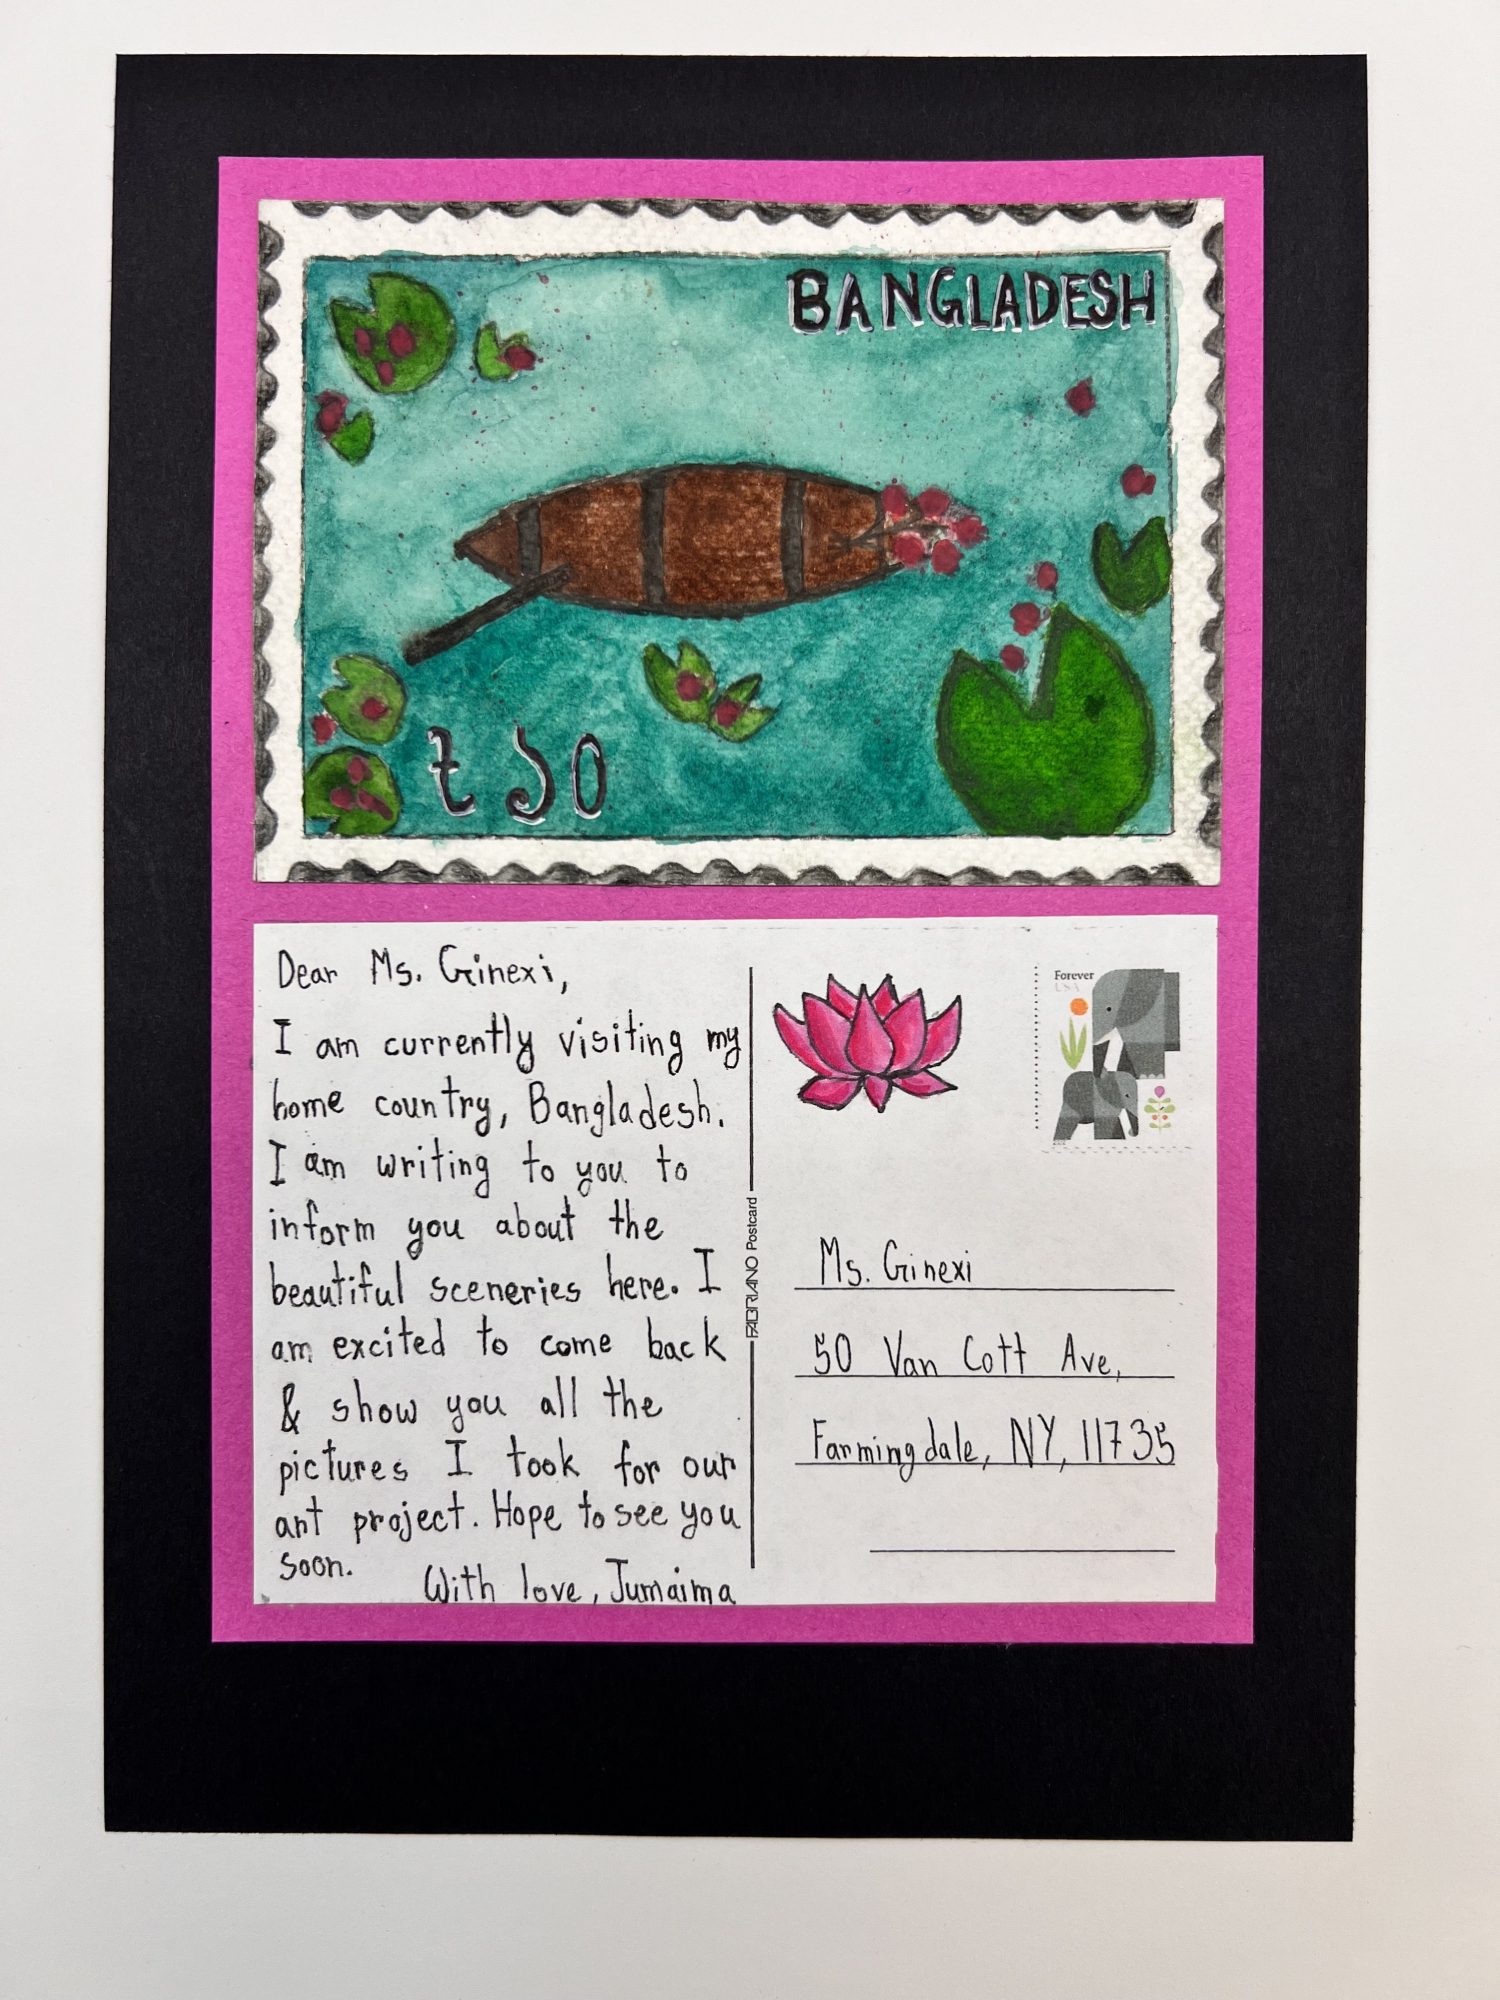 BANGLADESH
৳ ১০
Dear Ms. Ginexi,
I am currently visiting my
home country, Bangladesh.
I am writing to you to
inform you about the
beautiful sceneries here. I
am excited to come back
& show you all the
pictures I took for our
art project. Hope to see you
soon.
With love, Jumaima
FABRIANO Postcard
Forever
USA
Ms. Ginexi
50 Van Cott Ave,
Farmingdale, NY, 11735